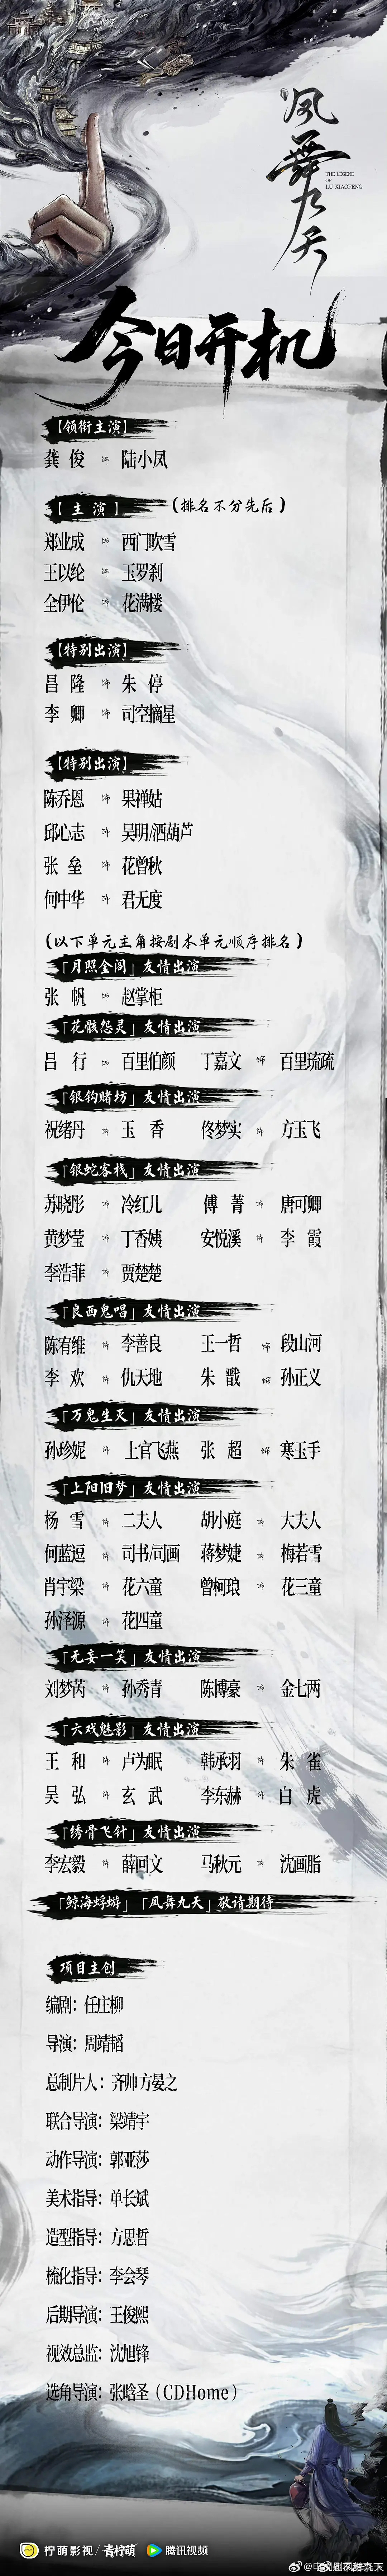 凤舞九天
THE LEGEND
OF
LU XIAOFENG
今日开机
【领衔主演】
龚 俊 饰 陆小凤
【主 演】 (排名不分先后)
郑业成 饰 西门吹雪
王以纶 饰 玉罗刹
全伊伦 饰 花满楼
【特别出演】
昌 隆 饰 朱 停
李 卿 饰 司空摘星
【特别出演】
陈乔恩 饰 果禅姑
邱心志 饰 吴明/洒葫芦
张 垒 饰 花曾秋
何中华 饰 君无度
(以下单元主角按剧本单元顺序排名)
「月照金阁」友情出演
张 帆 饰 赵掌柜
「花骸怨灵」友情出演
吕 行 饰 百里伯颜 丁嘉文 饰 百里琉疏
「银钩赌坊」友情出演
祝绪丹 饰 玉 香 佟梦实 饰 方玉飞
「银蛇客栈」友情出演
苏晓彤 饰 冷红儿 傅 菁 饰 唐可卿
黄梦莹 饰 丁香姨 安悦溪 饰 李 霞
李浩菲 饰 贾楚楚
「良西鬼唱」友情出演
陈宥维 饰 李善良 王一哲 饰 段山河
李 欢 饰 仇天地 朱 戬 饰 孙正义
「万鬼生灭」友情出演
孙珍妮 饰 上官飞燕 张 超 饰 寒玉手
「上阳旧梦」友情出演
杨 雪 饰 二夫人 胡小庭 饰 大夫人
何蓝逗 饰 司书/司画 蒋梦婕 饰 梅若雪
肖宇梁 饰 花六童 曾柯琅 饰 花三童
孙泽源 饰 花四童
「无妄一笑」友情出演
刘梦芮 饰 孙秀青 陈博豪 饰 金七两
「六戏魅影」友情出演
王 和 饰 卢为眠 韩承羽 饰 朱 雀
吴 弘 饰 玄 武 李东赫 饰 白 虎
「绣骨飞针」友情出演
李宏毅 饰 薛可文 马秋元 饰 沈画脂
「鲸海蜉蝣」「凤舞九天」敬请期待
项目主创
编剧：任庄柳
导演：周靖韬
总制片人：齐帅 方晏之
联合导演：梁靖宇
动作导演：郭亚莎
美术指导：单长斌
造型指导：方思哲
梳化指导：李会琴
后期导演：王俊熙
视效总监：沈旭锋
选角导演：张晗圣（CDHome）
柠萌影业/青柠萌 腾讯视频